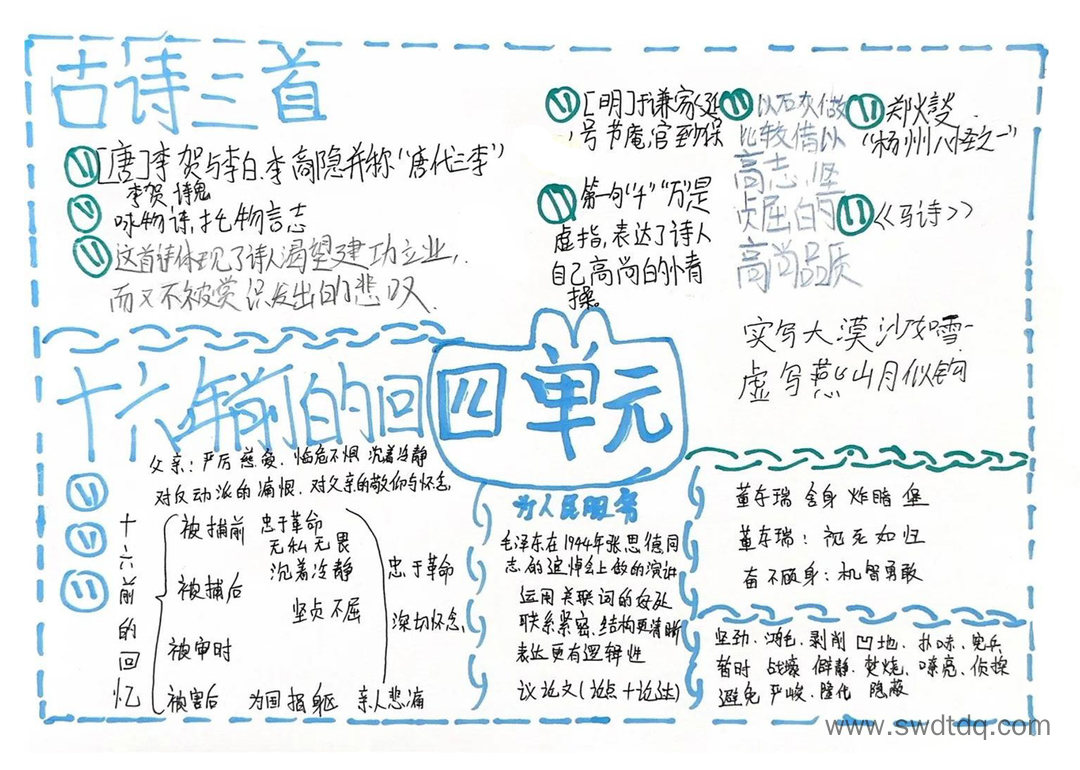 古诗三首
[唐]李贺与李白、李商隐并称“唐代三李”
李贺 诗鬼
咏物诗,托物言志
这首诗体现了诗人渴望建功立业,
而又不被赏识发出的悲叹.
[明]于谦家廷
号节庵,官到保
第一句“千”“万”是
虚指,表达了诗人
自己高尚的情
操。
以石灰做
比较借以
高志、坚
贞屈的
高尚品质
郑燮
“杨州八怪之一”
《马诗》
实写大漠沙如雪
虚写燕山月似钩
四单元
十六年前的回
父亲:严厉 慈爱、临危不惧 沉着冷静
对反动派的痛恨、对父亲的敬仰与怀念
十六前的回忆
被捕前 忠于革命
无私无畏
沉着冷静
被捕后
坚贞不屈
被审时
被害后 为国捐躯 亲人悲痛
忠于革命
深切怀念、
为人民服务
毛泽东在1944年张思德同
志的追悼会上做的演讲
运用关联词的好处
联系紧密、结构更清晰
表达更有逻辑性
议论文(论点+论述)
董存瑞 舍身炸暗堡
董存瑞:视死如归
奋不顾身:机智勇敢
坚劲、鸿毛、剥削 凹地、扑哧、宪兵
暂时 战壕 僻静、焚烧、嘹亮、侦探
避免 严峻、隐蔽
www.swdtdq.com